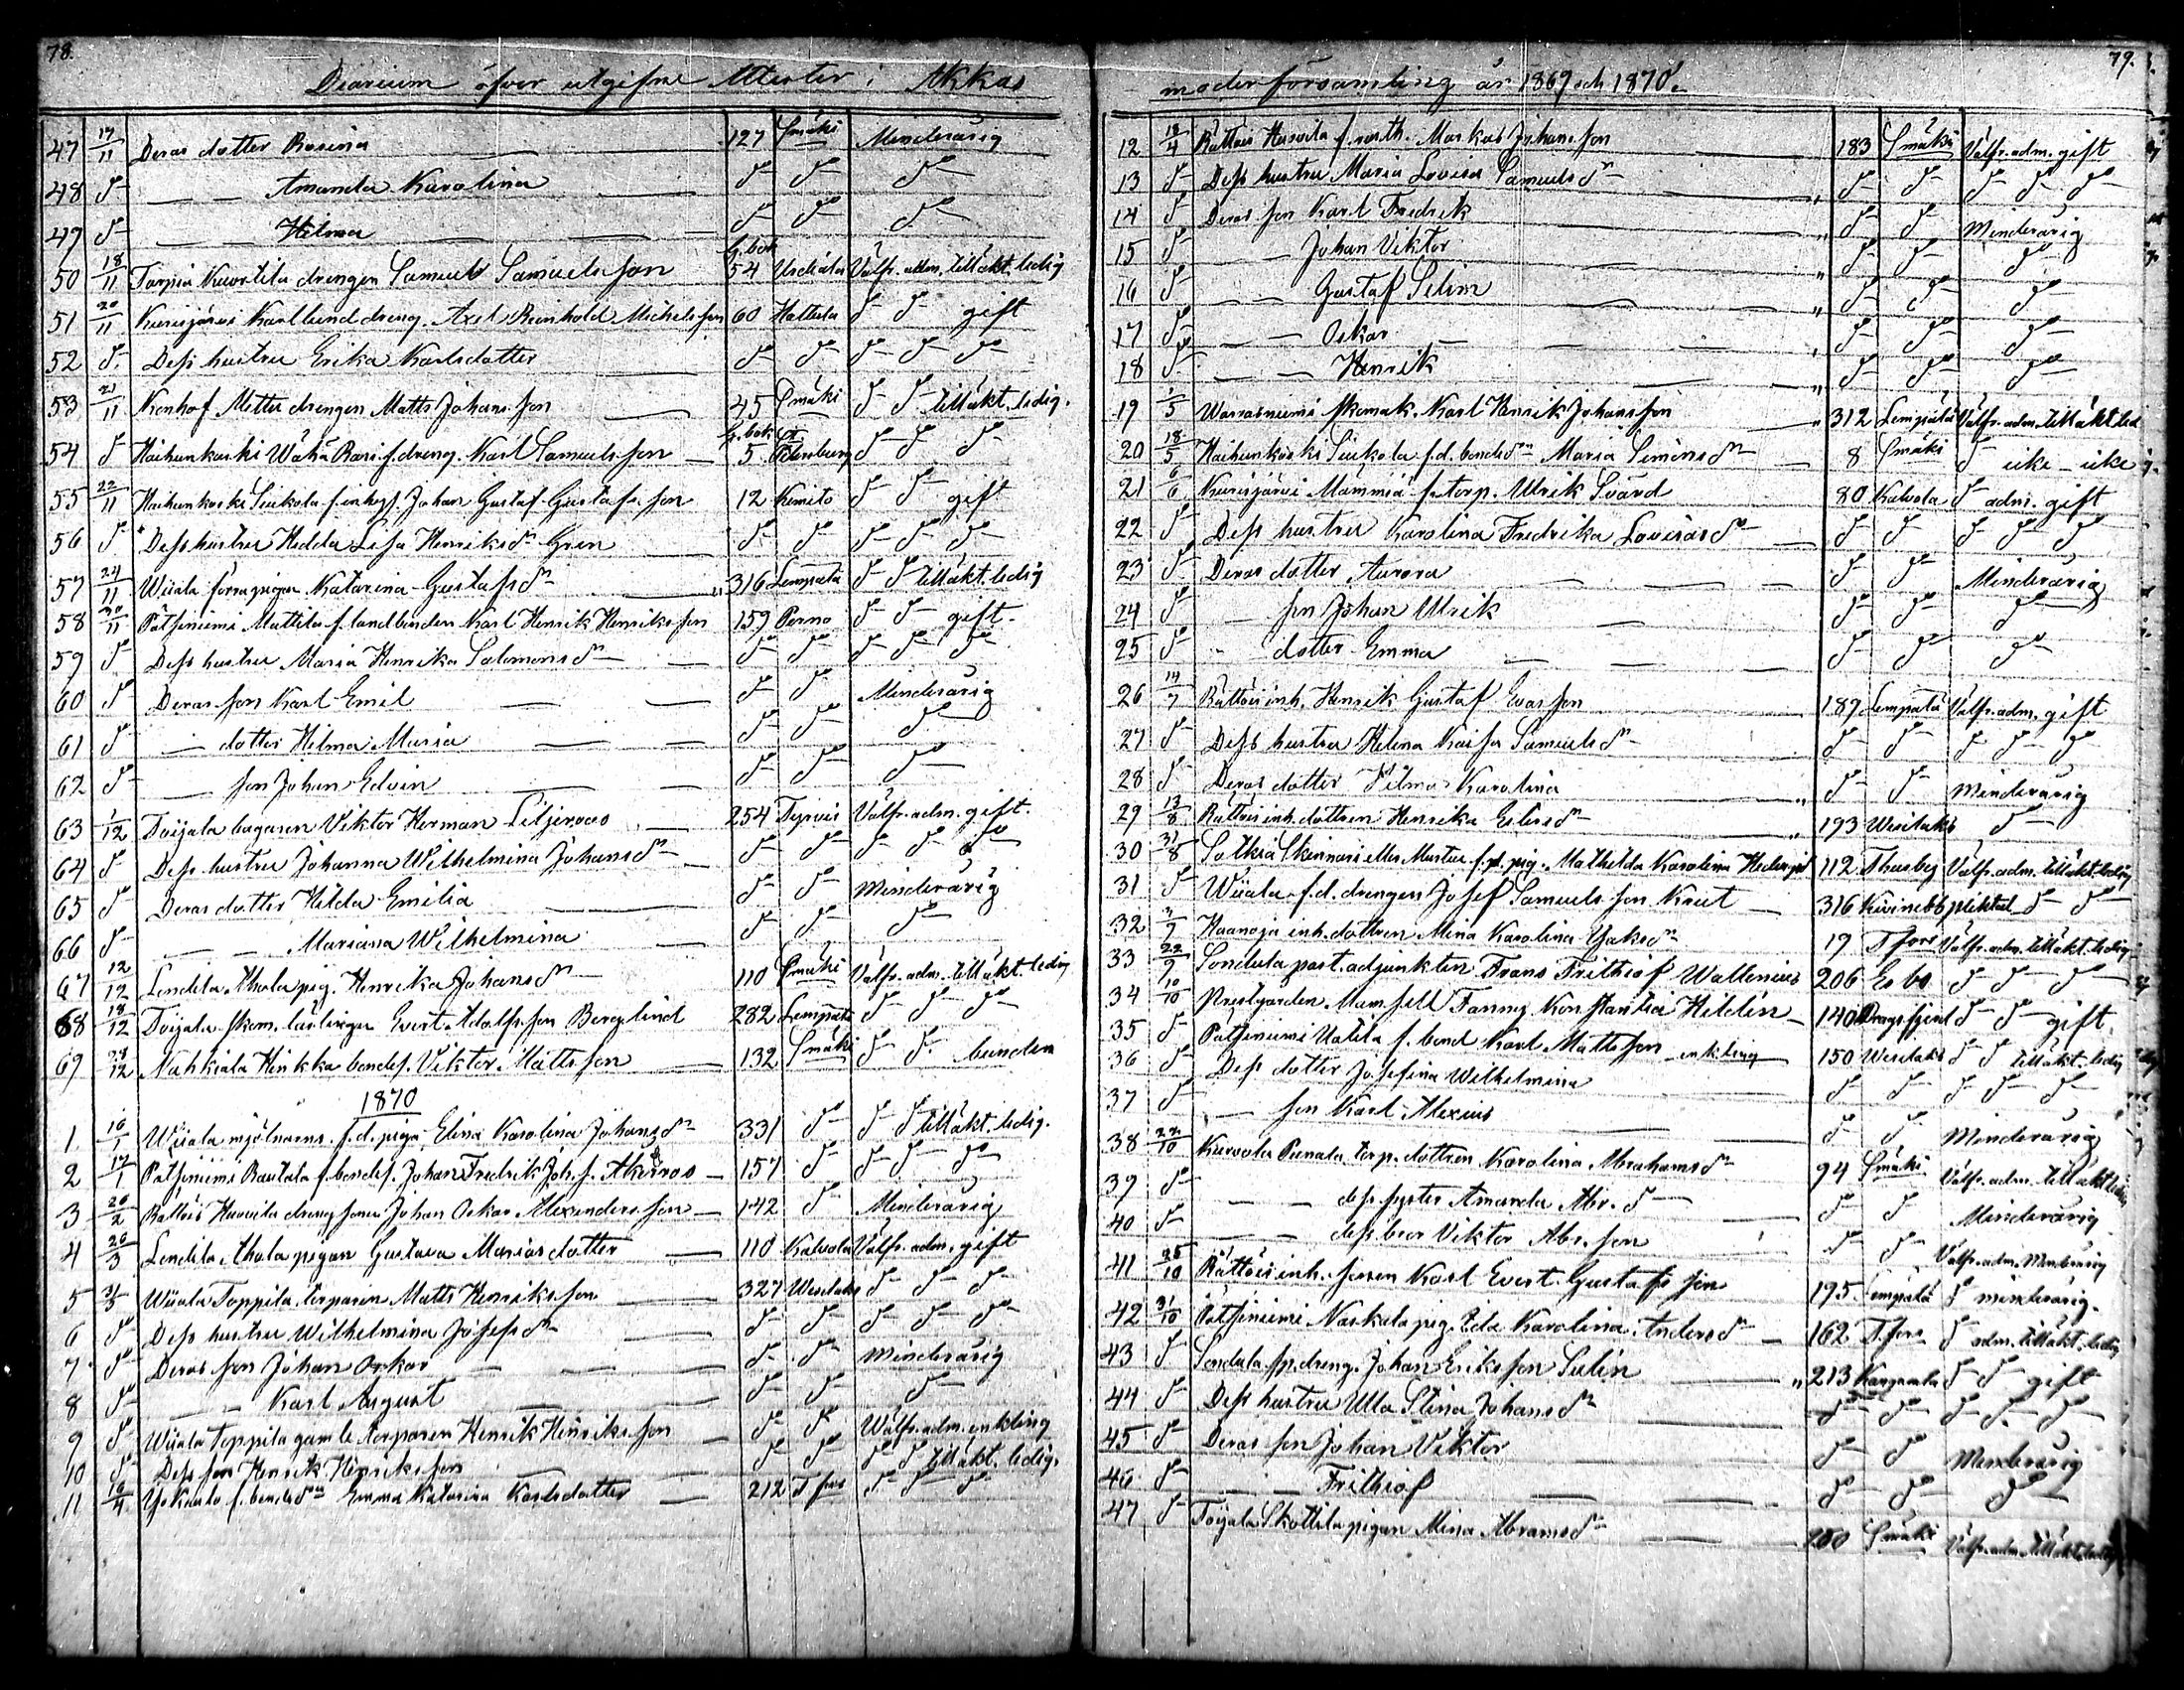 78.
Diarium öfver utgifne Attester i Akkas
47 17/11 Deras dotter Rosina 127 Smäki Minderårig
48 d- Amanda Karolina d- d- d-
49 d- Hilma d- d- d-
50 18/11 Tarpia Kurtila drengen Samuel Samuelsson L.bok 54 Urdiala Välfr. adm. tillåkt. ledig
51 20/11 Kurisjärvi Karllund dreng. Axel Reinhold Michelsson 60 Hattula d- d- gift
52 d- Dess hustru Erika Karlsdotter d- d- d- d- d-
53 21/11 Konhof Mettu drengen Matts Johansson 45 Smäki d- d- tillåkt. ledig.
54 d Haihunkoski Wähä Rasi f. dreng. Karl Samuelsson L.bok 5. St Petersburg d- d- d-
55 22/11 Haihunkoski Siukola f. inhys. Johan Gustaf Gustafsson 12 Kimito d- d- gift
56 d. Dess hustru Hedda Lisa Henriksdr Gren d- d- d- d- d-
57 24/11 Wiiala pigan Katarina Gustafsdr 316 Lempäla d- d- tillåkt. ledig
58 30/11 Pätsiniemi Mattila f. landbonden Karl Henrik Henriksson 159 Perno d- d- gift.
59 d- Dess hustru Maria Henrika Salomonsdr d- d- d- d- d-
60 d Deras son Karl Emil d- d- Minderårig
61 d- dotter Hilma Maria d- d- d-
62 d- son Johan Edvin d- d- d-
63 1/12 Toijala bagaren Viktor Herman Liljeroos 254 Tyrvis Välfr. adm. gift.
64 d Dess hustru Johanna Wilhelmina Johansdr d- d- d- d- d-
65 d- Deras dotter Hilda Emilia d- d- Minderårig
66 d- Mariana Wilhelmina d- d- d-
67 12/12 Lendila Ahola pig. Henrika Johansdr 110 Smäki Välfr. adm. tillåkt. ledig
68 18/12 Toijala skom. lärlingen Evert Adolfsson Berglind 282 Lempäla d- d- d-
69 28/12 Nahkiala Hinkka bondes. Viktor Mattsson 132 Smäki d- d- bunden
1870
1. 16/1 Wiiala mjölnarns f.d. piga Elina Karolina Johansdr 331 d- d- d- tillåkt. ledig.
2 17/1 Pätsiniemi Rautala f. bondes. Johan Fredrik Joh. s. Akerroos 157 d- d- d- d-
3 26/2 Rättöis Huovila drengsonen Johan Oskar Alexandersson 142 d- Minderårig
4 26/3 Lendila Ahola pigan Gustava Mariasdotter 110 Kalvola Välfr. adm. gift
5 31/3 Wiiala Toppila torparen Matts Henriksson 327 Wesilaks d- d- d-
6 d- Dess hustru Wilhelmina Josefsdr d- d- d- d- d-
7. d- Deras son Johan Oskar d- d- Minderårig
8 d- Karl August d- d- d-
9 d- Wiiala Toppila gamle torparen Henrik Henriksson d- d- Wälfr. adm. enkling
10 d- Dess son Henrik Henriksson d- d- d- d- tillåkt. ledig.
11 16/4 f. bondedr Emma Katarina Karlsdotter 212 T.fors d- d- d-
79.
moderförsamling år 1869 och 1870.
12 18/4 Rättöis Huovila f. Markus Johansson 183 Smäki Välfr. adm. gift
13 d- Dess hustru Maria Lovisa Samuelsdr d- d- d- d- d-
14 d- Deras son Karl Fredrik d- d- Minderårig
15 d- Johan Viktor d- d- d-
16 d- Gustaf Selim d- d- d-
17 d- Oskar d- d- d-
18 d- Henrik d- d- d-
19 1/5 Warrasniemi skomak. Karl Henrik Johansson 312 Lempäla Välfr. adm. tillåkt. led
20 18/5 Haihunkoski Siukola f.d. bondedr Maria Simonsdr 8 Smäki d- icke - icke
21 6/6 Kurisjärvi Mämmiä f. torp. Ulrik Svärd 80 Kalvola d- adm. gift
22 d- Dess hustru Karolina Fredrika Lovisasdr d- d- d- d- d-
23 d- Deras dotter Aurora d- d- Minderårig
24 d- son Johan Ulrik d- d- d-
25 d- dotter Emma d- d- d-
26 14/7 Rättöis inh. Henrik Gustaf Evasson 189 Lempäla Välfr. adm. gift
27 d- Dess hustru Helena Kaisa Samuelsdr d- d- d- d- d-
28 d- Deras dotter Hilma Karolina d- d- Minderårig
29 13/8 Rättöis inh. dottren Henrika Eliasdr 193 Wesilaks d-
30 31/8 Sotkia Skinnari eller Mustue f.d. pig. Mathilda Karolina 112 Thusby Välfr. adm. tillåkt. ledig
31 d- Wiiala f.d. drengen Josef Samuelsson Kraut 316 Kivinebb d- d-
32 Haanoja inh. dottren Mina Karolina 19 T.fors Välfr. adm. tillåkt. ledig
33 22/9 Sondula past. adjunkten Frans Frithiof Wallenius 206 Esbo d- d- d-
34 10/10 Prestgården Mamsell Fanny Konstantia Hildén 140 Dragsfjerd d- d- gift.
35 d- Pätsiniemi Uotila f. bond Karl Mattsson enkling 150 Wesilaks d- d- tillåkt. ledig
36 d- Dess dotter Josefina Wilhelmina d- d- d- d- d-
37 d- son Karl Alexius d- d- Minderårig
38 22/10 Kurvola Punala torp. dottren Karolina Abrahamsdr 94 Smäki Välfr. adm. tillåkt. ledig
39 d- dess syster Amanda Abr. d- d- d- Minderårig
40 d- dess bror Viktor Abr. son d- d- Välfr. adm. Minderårig
41 25/10 Rättöis inh. sonen Karl Evert Gustafsson 195. Lempäla d- minderårig.
42 31/10 Pätsiniemi Naskala pig. Ida Karolina Andersdr 162 T.fors d- adm. tillåkt. ledig
43 d- Sondula sp. dreng. Johan Eriksson Sulin 213 d- d- gift
44 d- Dess hustru Ulla Stina Johansdr d- d- d- d- d-
45 d- Deras son Johan Viktor d- d- Minderårig
46 d- Frithiof d- d- d-
47 d- Toijala Skottila pigan Mina Abramsdr 250 Smäki Välfr. adm. tillåkt. ledig